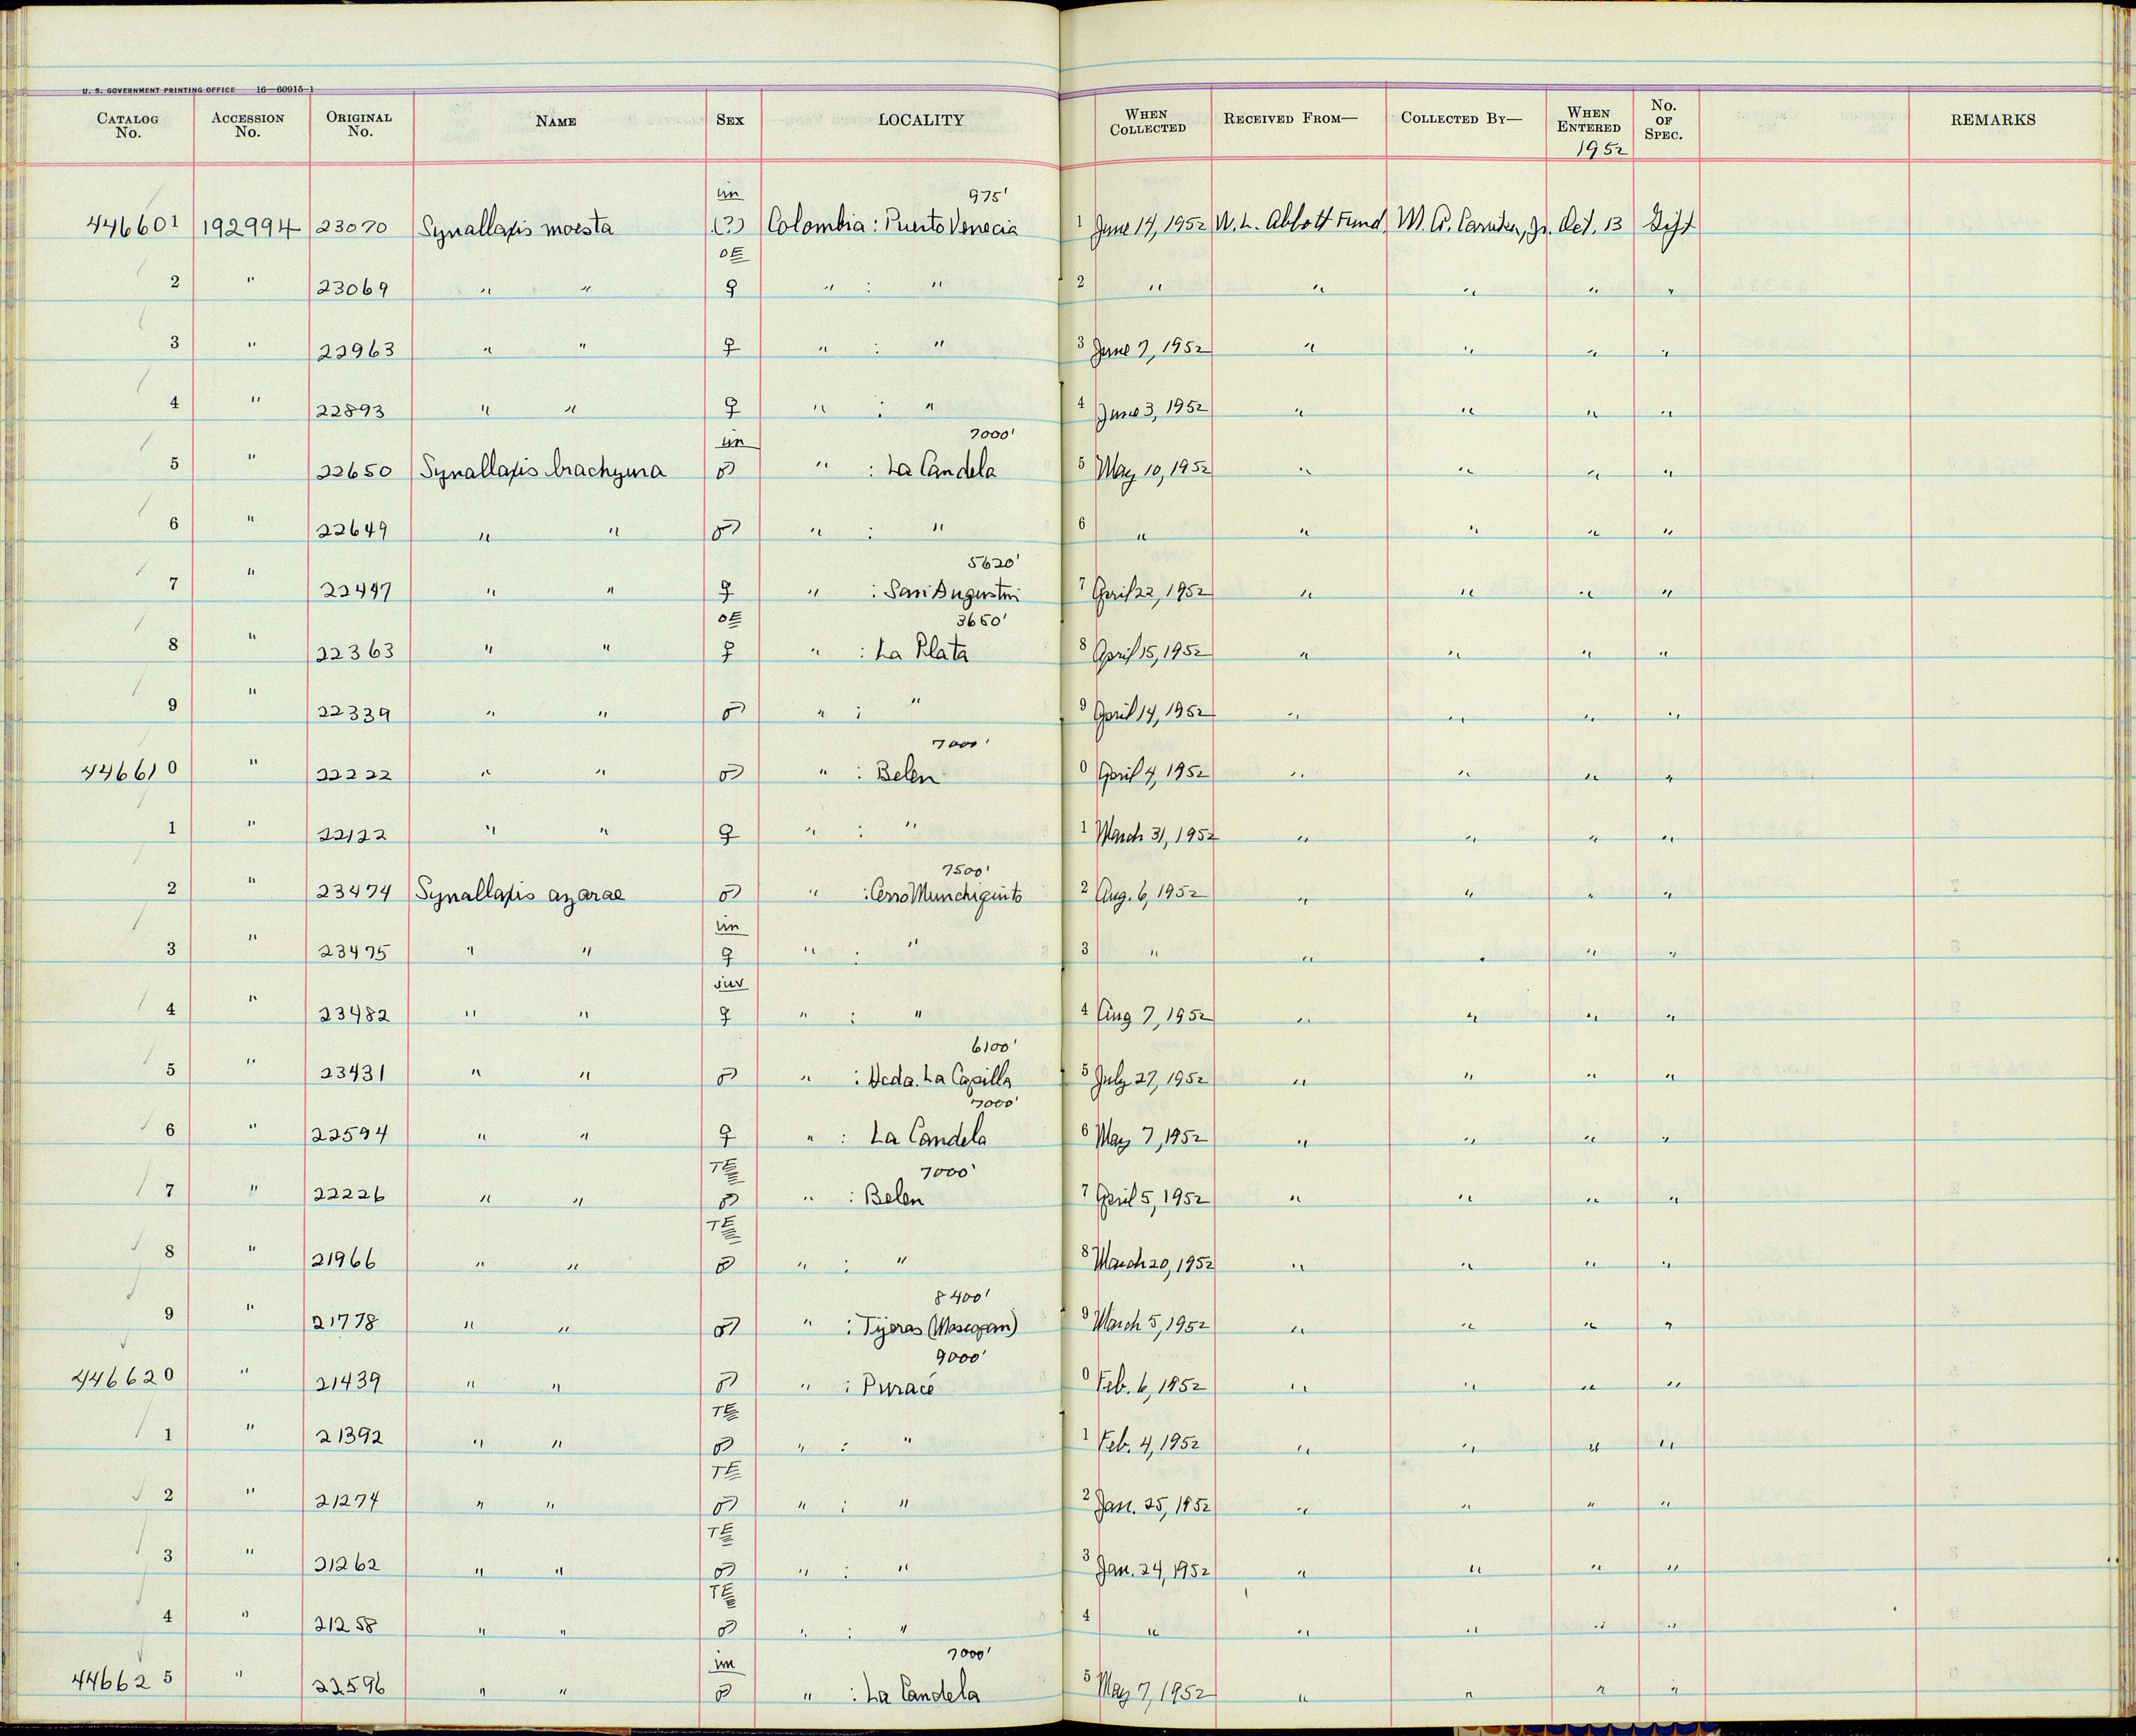 U. S. GOVERNMENT PRINTING OFFICE 16—60915-1
CATALOG No. ACCESSION No. ORIGINAL No. NAME SEX LOCALITY WHEN COLLECTED RECEIVED FROM— COLLECTED BY— WHEN ENTERED 1952 No. OF SPEC. REMARKS
im 975'
446601 192994 23070 Synallaxis moesta (?) Colombia: Puerto Venecia 1 June 14, 1952 W. L. Abbott Fund M. A. Carriker, Jr. Oct. 13 Gift
OE
2 " 23069 " " ♀ " : " 2 " " " " "
3 " 22963 " " ♀ " : " 3 June 7, 1952 " " " "
4 " 22893 " " ♀ " : " 4 June 3, 1952 " " " "
im 7000'
5 " 22650 Synallaxis brachyura ♂ " : La Candela 5 May 10, 1952 " " " "
6 " 22649 " " ♂ " : " 6 " " " " "
5620'
7 " 22497 " " ♀ " : San Augustin 7 April 22, 1952 " " " "
OE 3650'
8 " 22363 " " ♀ " : La Plata 8 April 15, 1952 " " " "
9 " 22339 " " ♂ " : " 9 April 14, 1952 " " " "
7000'
446610 " 22222 " " ♂ " : Belen 0 April 4, 1952 " " " "
1 " 22122 " " ♀ " : " 1 March 31, 1952 " " " "
7500'
2 " 23474 Synallaxis azarae ♂ " : Cerro Munchiquito 2 Aug. 6, 1952 " " " "
im
3 " 23475 " " ♀ " : " 3 " " " " "
juv
4 " 23482 " " ♀ " : " 4 Aug 7, 1952 " " " "
6100'
5 " 23431 " " ♂ " : Hcda. La Capilla 5 July 27, 1952 " " " "
7000'
6 " 22594 " " ♀ " : La Candela 6 May 7, 1952 " " " "
TE 7000'
7 " 22226 " " ♂ " : Belen 7 April 5, 1952 " " " "
TE
8 " 21966 " " ♂ " : " 8 March 20, 1952 " " " "
8400'
9 " 21778 " " ♂ " : Tijeras (Moscopan) 9 March 5, 1952 " " " "
9000'
446620 " 21439 " " ♂ " : Puracé 0 Feb. 6, 1952 " " " "
TE
1 " 21392 " " ♂ " : " 1 Feb. 4, 1952 " " " "
TE
2 " 21274 " " ♂ " : " 2 Jan. 25, 1952 " " " "
TE
3 " 21262 " " ♂ " : " 3 Jan. 24, 1952 " " " "
TE
4 " 21258 " " ♂ " : " 4 " " " " "
im 7000'
446625 " 22596 " " ♂ " : La Candela 5 May 7, 1952 " " " "